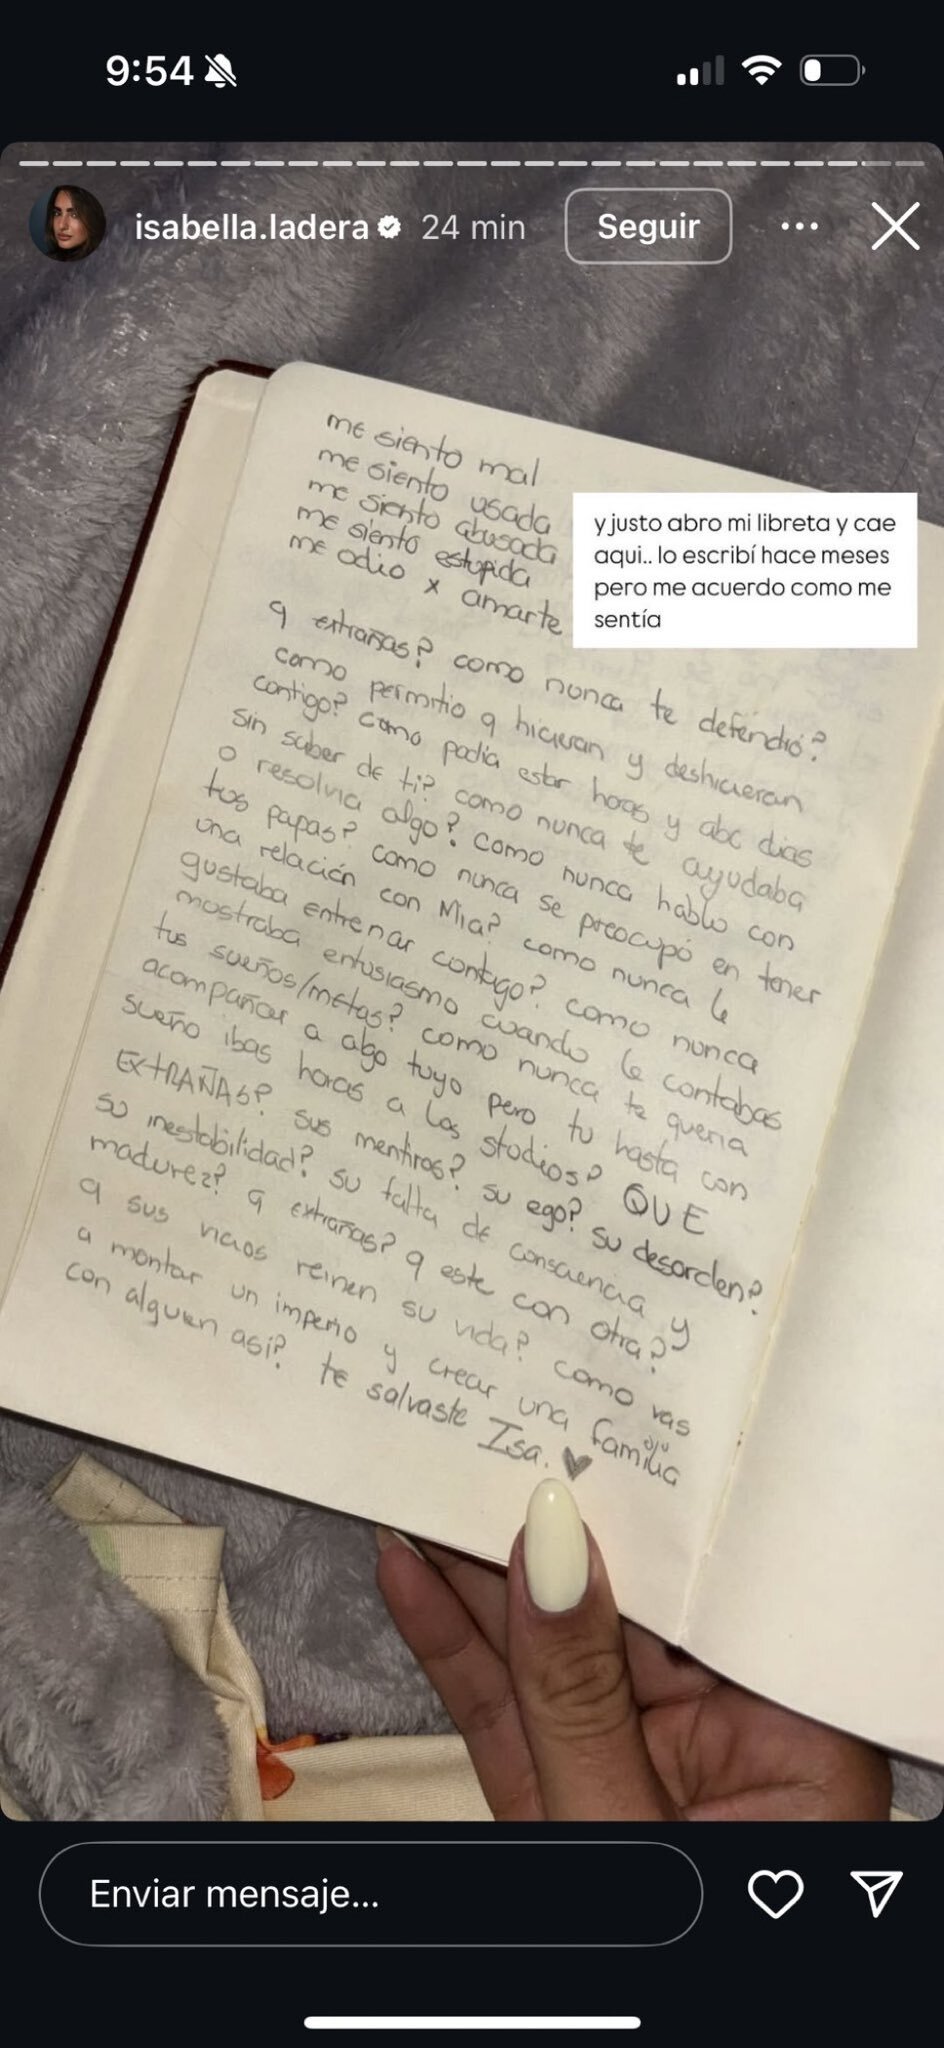 9:54
isabella.ladera 24 min Seguir
me siento mal
me siento usada
me siento abusada
me siento estupida
me odio x amarte
y justo abro mi libreta y cae
aqui.. lo escribí hace meses
pero me acuerdo como me
sentía
q extrañas? como nunca te defendió?
como permitio q hicieran y deshicieran
contigo? como podia estar horas y abc dias
sin saber de ti? como nunca te ayudaba
o resolvia algo? como nunca hablo con
tus papas? como nunca se preocupó en tener
una relación con Mia? como nunca le
gustaba entrenar contigo? como nunca
mostraba entusiasmo cuando le contabas
tus sueños/metas? como nunca te queria
acompañar a algo tuyo pero tu hasta con
sueño ibas horas a los studios? QUE
EXTRAÑAS? sus mentiras? su ego? su desorden?
su inestabilidad? su falta de consciencia y
madurez? q extrañas? q este con otra?
q sus vicios reinen su vida? como vas
a montar un imperio y crear una familia
con alguien asi? te salvaste Isa. ♥
Enviar mensaje...